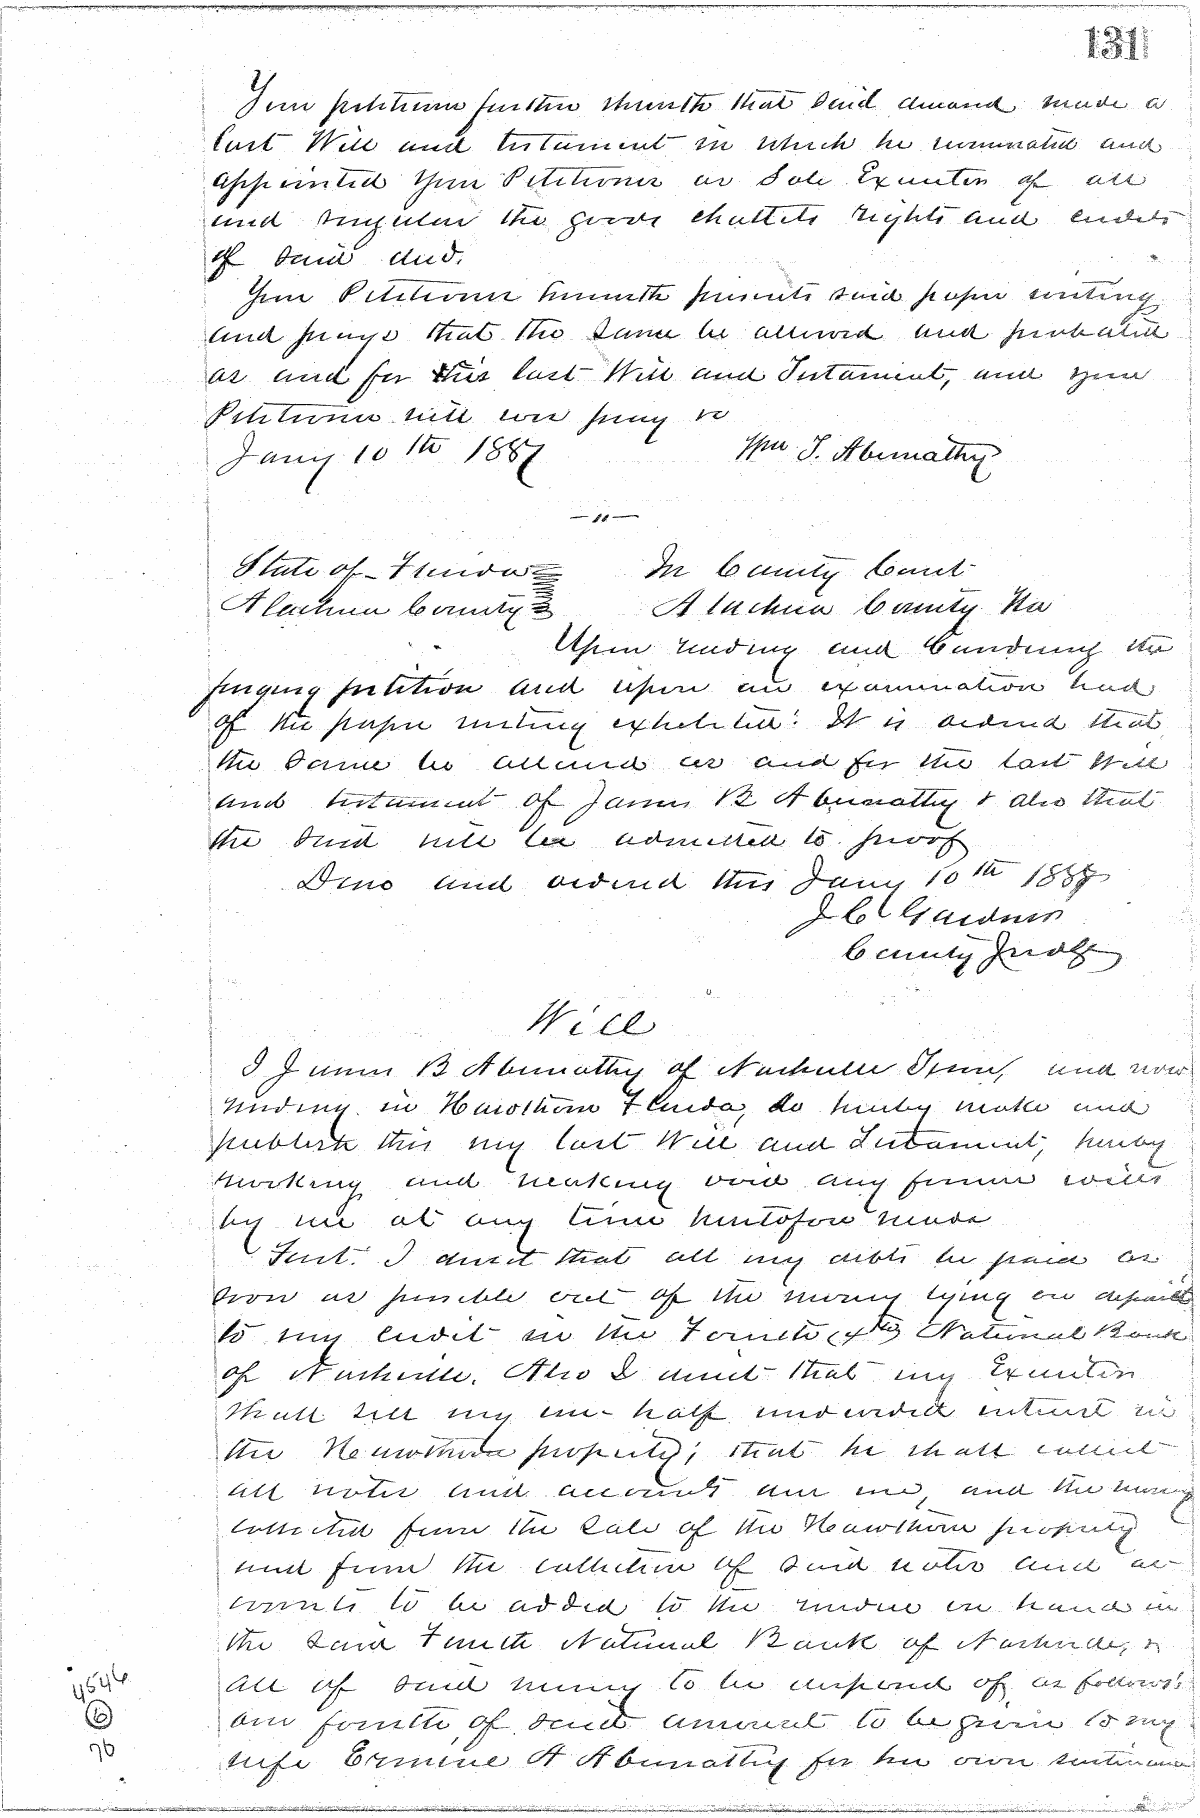 131
Your petitioner further sheweth that said deceased made a
last Will and testament in which he nominated and
appointed Your Petitioner as Sole Executor of all
and singular the goods chattels rights and credits
of said decd.
Your Petitioner herewith presents said paper writing
and prays that the same be allowed and probated
as and for this last Will and Testament, and your
Petitioner will ever pray &c
Jany 10th 1887 Wm T. Abernathy
— " —
State of Florida In County Court
Alachua County Alachua County Fla
Upon reading and Considering the
forgoing petition and upon an examination had
of the paper writing exhibited: It is ordered that
the same be allowed as and for the last Will
and testament of James B Abernathy & also that
the said will be admitted to proof
Done and ordered this Jany 10th 1887
J C Gardner
County Judge
Will
I James B Abernathy of Nashville Tenn, and now
residing in Hawthorn Florida, do hereby make and
publish this my last Will and Testament, hereby
revoking and making void any former wills
by me at any time heretofore made
First. I direct that all my debts be paid as
soon as possible out of the money lying on deposit
to my credit in the Fourth (4th) National Bank
of Nashville. Also I direct that my Executor
shall sell my one-half undivided interest in
the Hawthorn property; that he shall collect
all notes and accounts due me, and the money
collected from the sale of the Hawthorn property
and from the collection of said notes and ac-
counts to be added to the on hand in
the said Fourth National Bank of Nashville, &
all of said money to be disposed of as follows:
one fourth of said amount to be given to my
wife Ermine A Abernathy for her own
4546
6
76